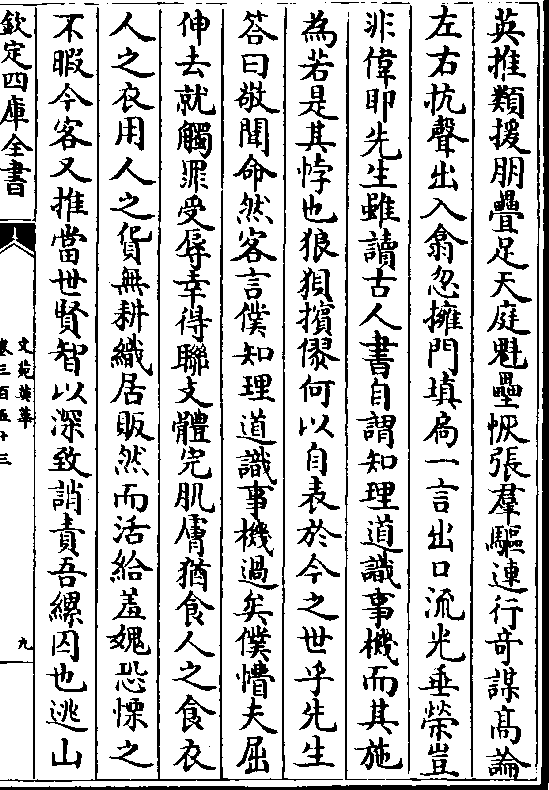 英推類援朋疊足天庭魁壘恢張羣驅連行竒謀髙論
左右抗聲出入翕忽擁門填扃一言出口流光垂榮豈
非偉耶先生雖讀古人書自謂知理道識事機而其施
為若是其悖也狼狽擯僇何以自表於今之世乎先生
答曰敬聞命然客言僕知理道識事機過矣僕懵夫屈
伸去就觸罪受辱幸得聯支體完肌膚猶食人之食衣
人之衣用人之貨無耕織居販然而活給羞媿恐慄之
不暇今客又推當世賢智以深致誚責吾縲囚也逃山
欽定四庫全書
文苑英華
卷三百五十三
九